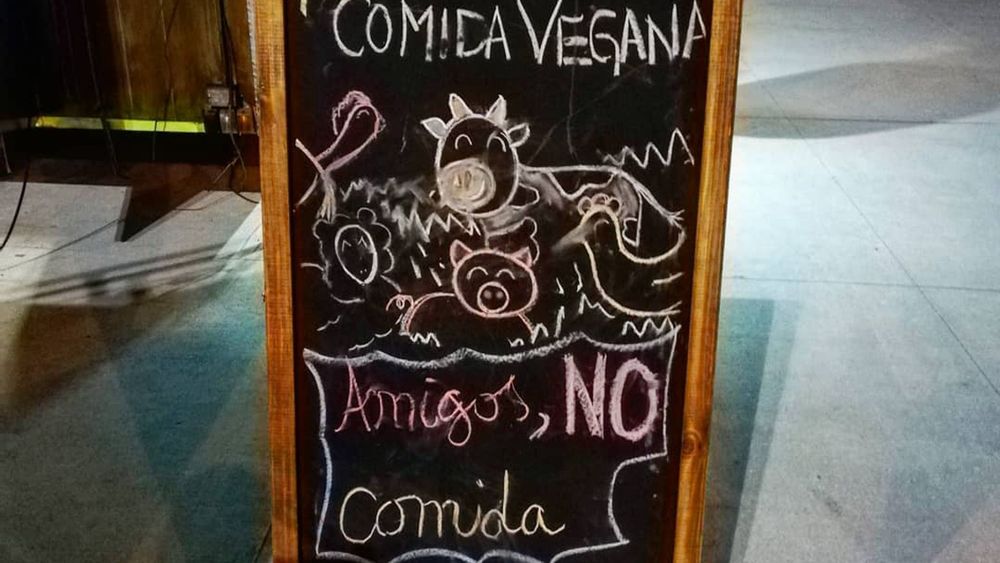 COMIDA VEGANA
Amigos, NO
Comida